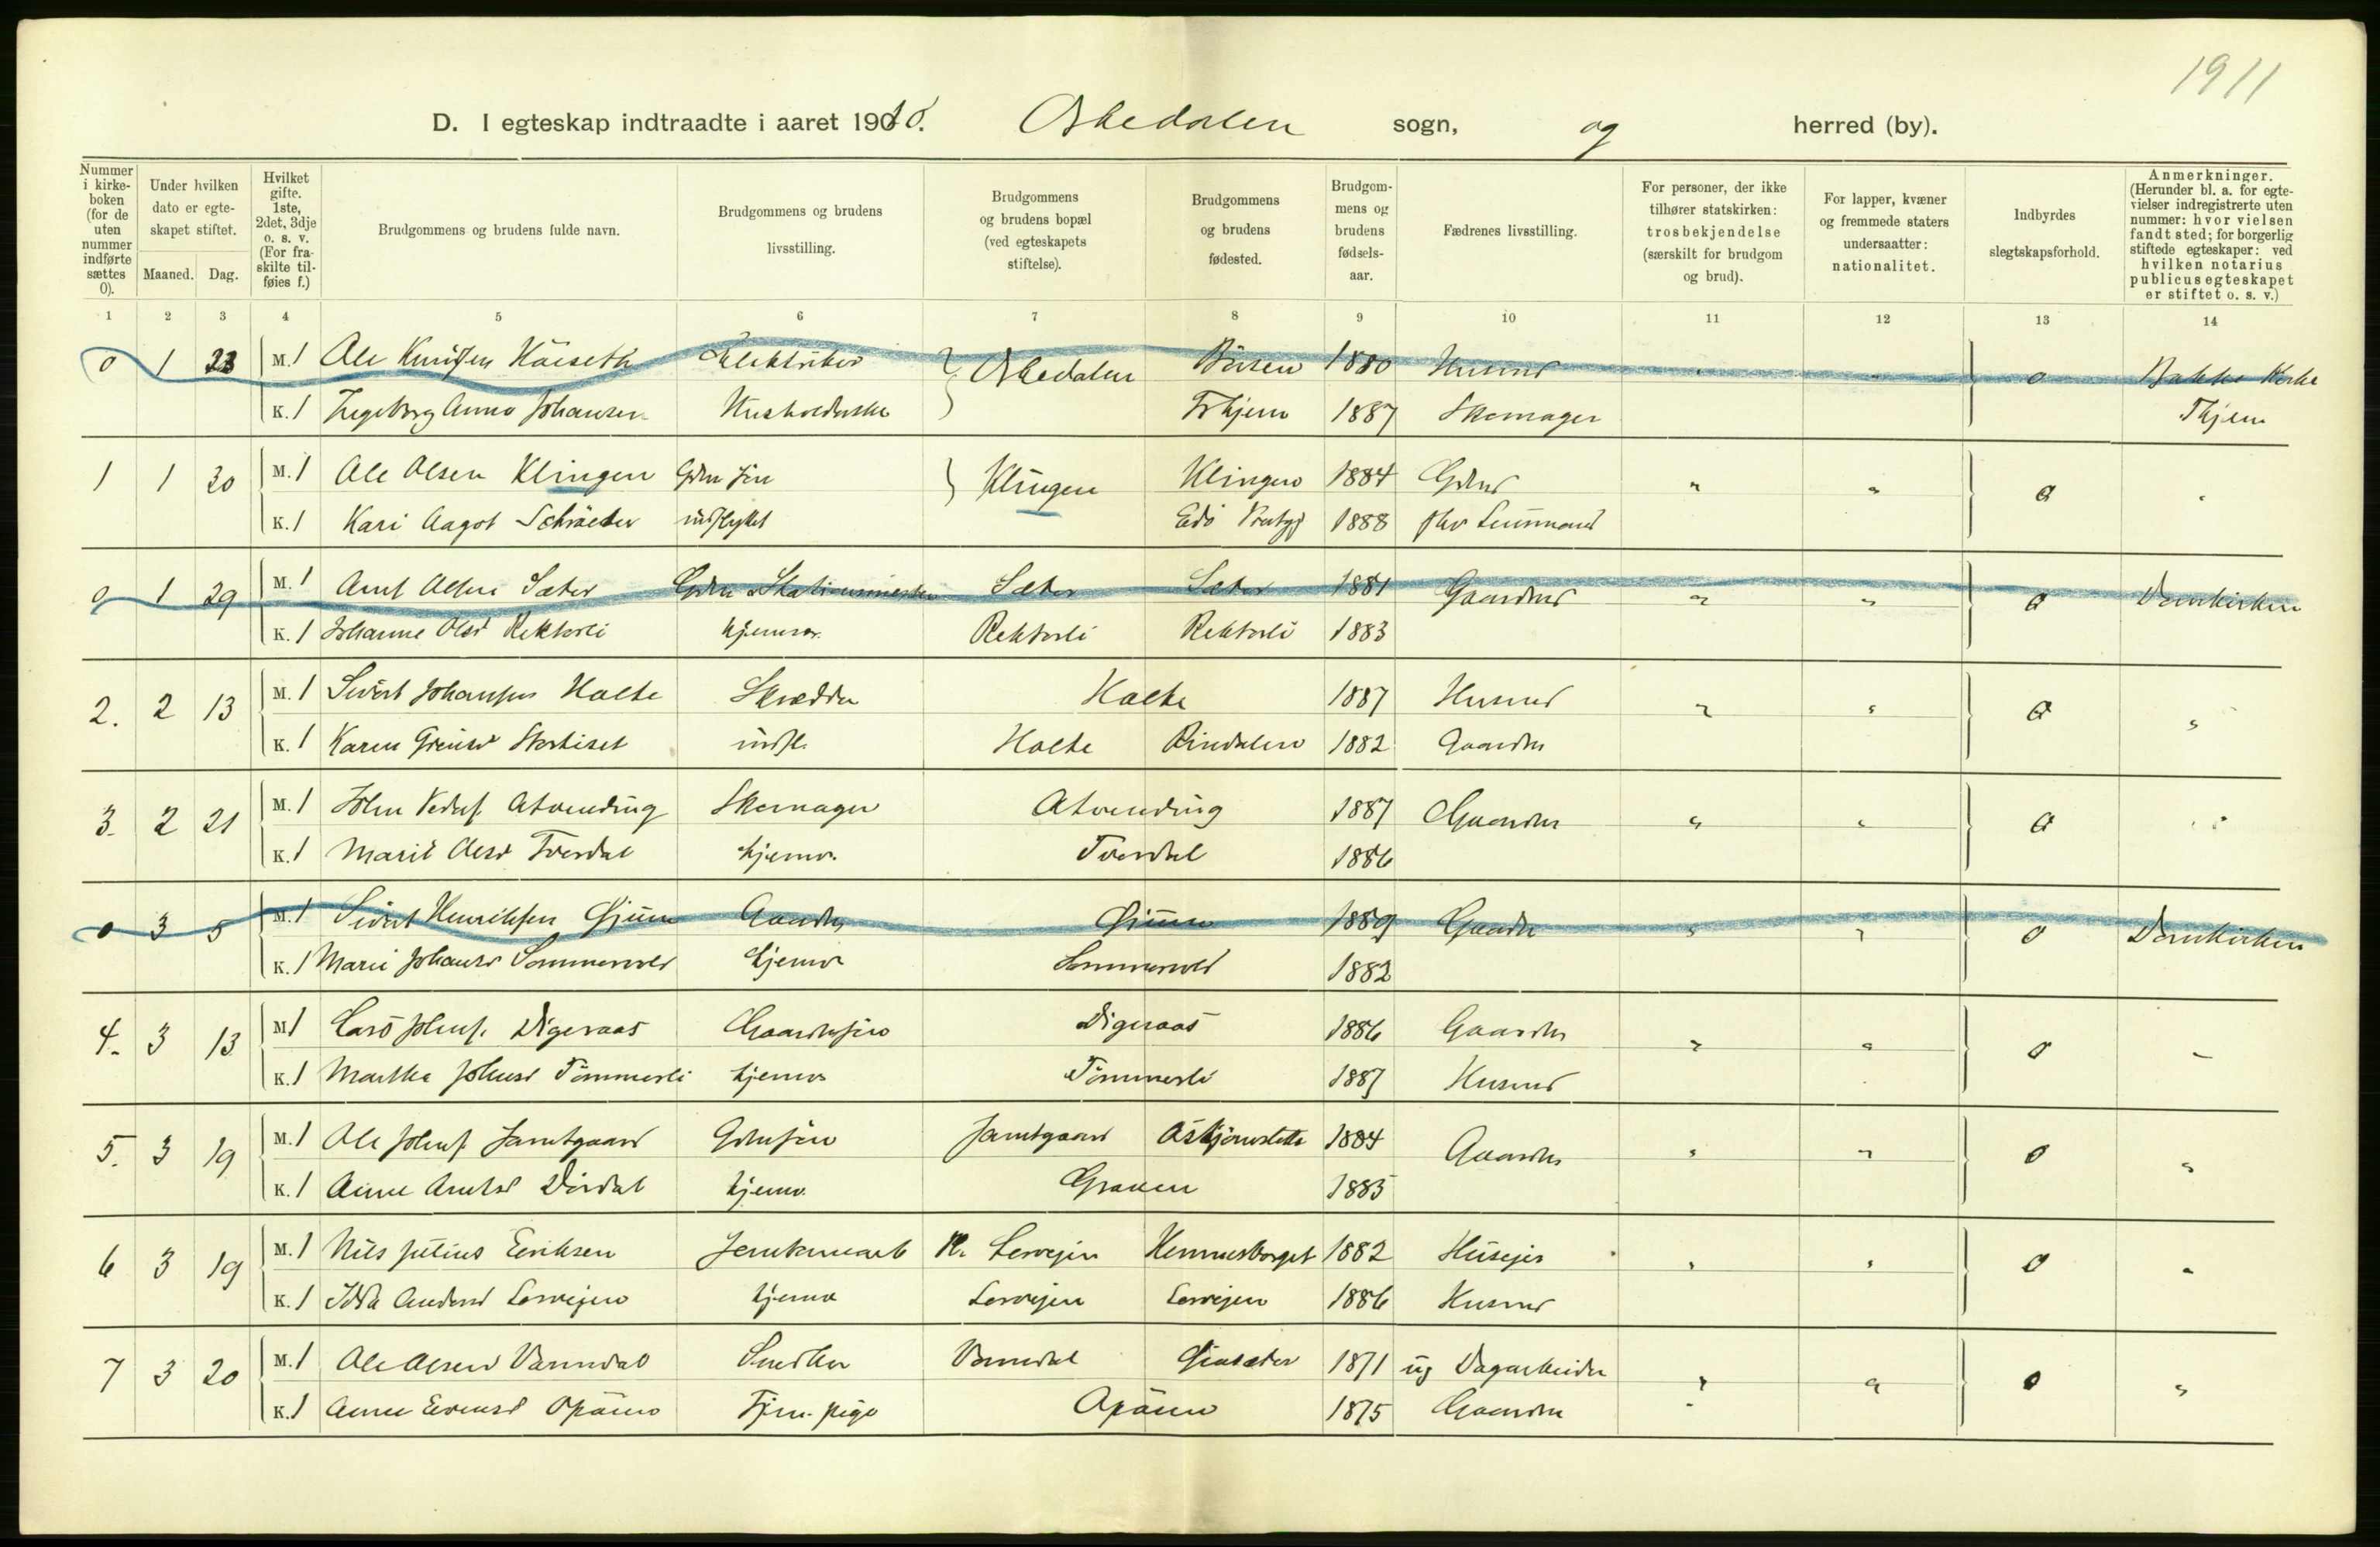 1911
D. I egteskap indtraadte i aaret 1910. Orkedalen sogn, og herred (by).
Nummer i kirke-boken (for de uten nummer indførte sættes 0).
Under hvilken dato er egte-skapet stiftet.
Maaned. Dag.
Hvilket gifte. 1ste, 2det, 3dje o. s. v. (For fra-skilte til-føies f.)
Brudgommens og brudens fulde navn.
Brudgommens og brudens livsstilling.
Brudgommens og brudens bopæl (ved egteskapets stiftelse).
Brudgommens og brudens fødested.
Brudgom-mens og brudens fødsels-aar.
Fædrenes livsstilling.
For personer, der ikke tilhører statskirken: trosbekjendelse (særskilt for brudgom og brud).
For lapper, kvæner og fremmede staters undersaatter: nationalitet.
Indbyrdes slegtskapsforhold.
Anmerkninger. (Herunder bl. a. for egte-vielser indregistrerte uten nummer: hvor vielsen fandt sted; for borgerlig stiftede egteskaper: ved hvilken notarius publicus egteskapet er stiftet o. s. v.)
1 2 3 4 5 6 7 8 9 10 11 12 13 14
0 1 23 M. 1 Ole Knutsen Elektriker Orkedalen Børsen 1880 Husmd 0 Bakke Kirke
K. 1 Ingeborg Anna Johansen Husholderske Trhjem 1887 Skomager Thjem
1 1 30 M. 1 Ole Olsen Klingen Klingen Klingen 1884 Gdmd " " 0
K. 1 Kari Aagot Schrøeder indflyttet Edø 1888
0 1 29 M. 1 Arnt Olsen Sæter Sæter Sæter 1881 Gaardmd " " 0 Domkirken
K. 1 Johanne Olsd Rektorli hjemv. Rektorli Rektorli 1883
2. 2 13 M. 1 Sivert Johansen Holte Skrædder Holte 1887 Husmd " " 0 "
K. 1 Karen indfl. Holte Rindalen 1882 Gaardm
3. 2 21 M. 1 John Skomager 1887 Gaardm " " 0 "
K. 1 Marit Olsd hjemv. 1886
0 3 5 M. 1 Sivert Henriksen Gjum Gaardm Gjum 1889 Gaardm " " 0 Domkirken
K. 1 Marie Johansd Sommervold hjemv Sommervold 1882
4. 3 13 M 1 Lars Johns. Digeraas Gaardmsøn Digeraas 1886 Gaardm " " 0 "
K. 1 Martha Johnsd Tømmerli hjemv Tømmerli 1887 Husmd
5. 3 19 M. 1 Ole Johns. Jamtgaard Gdmsøn Jamtgaard 1884 Gaardm " " 0 "
K. 1 Anne Arntsd hjemv. 1885
6 3 19 M. 1 Nils Julius Eriksen 1882 Husejer " " 0 "
K. 1 Anders hjemv 1886 Husmd
7 3 20 M. 1 Ole Olsen Vormdal Snedker Vormdal 1871 Dagarbeider " " 0 "
K. 1 Anne 1875 Gaardm